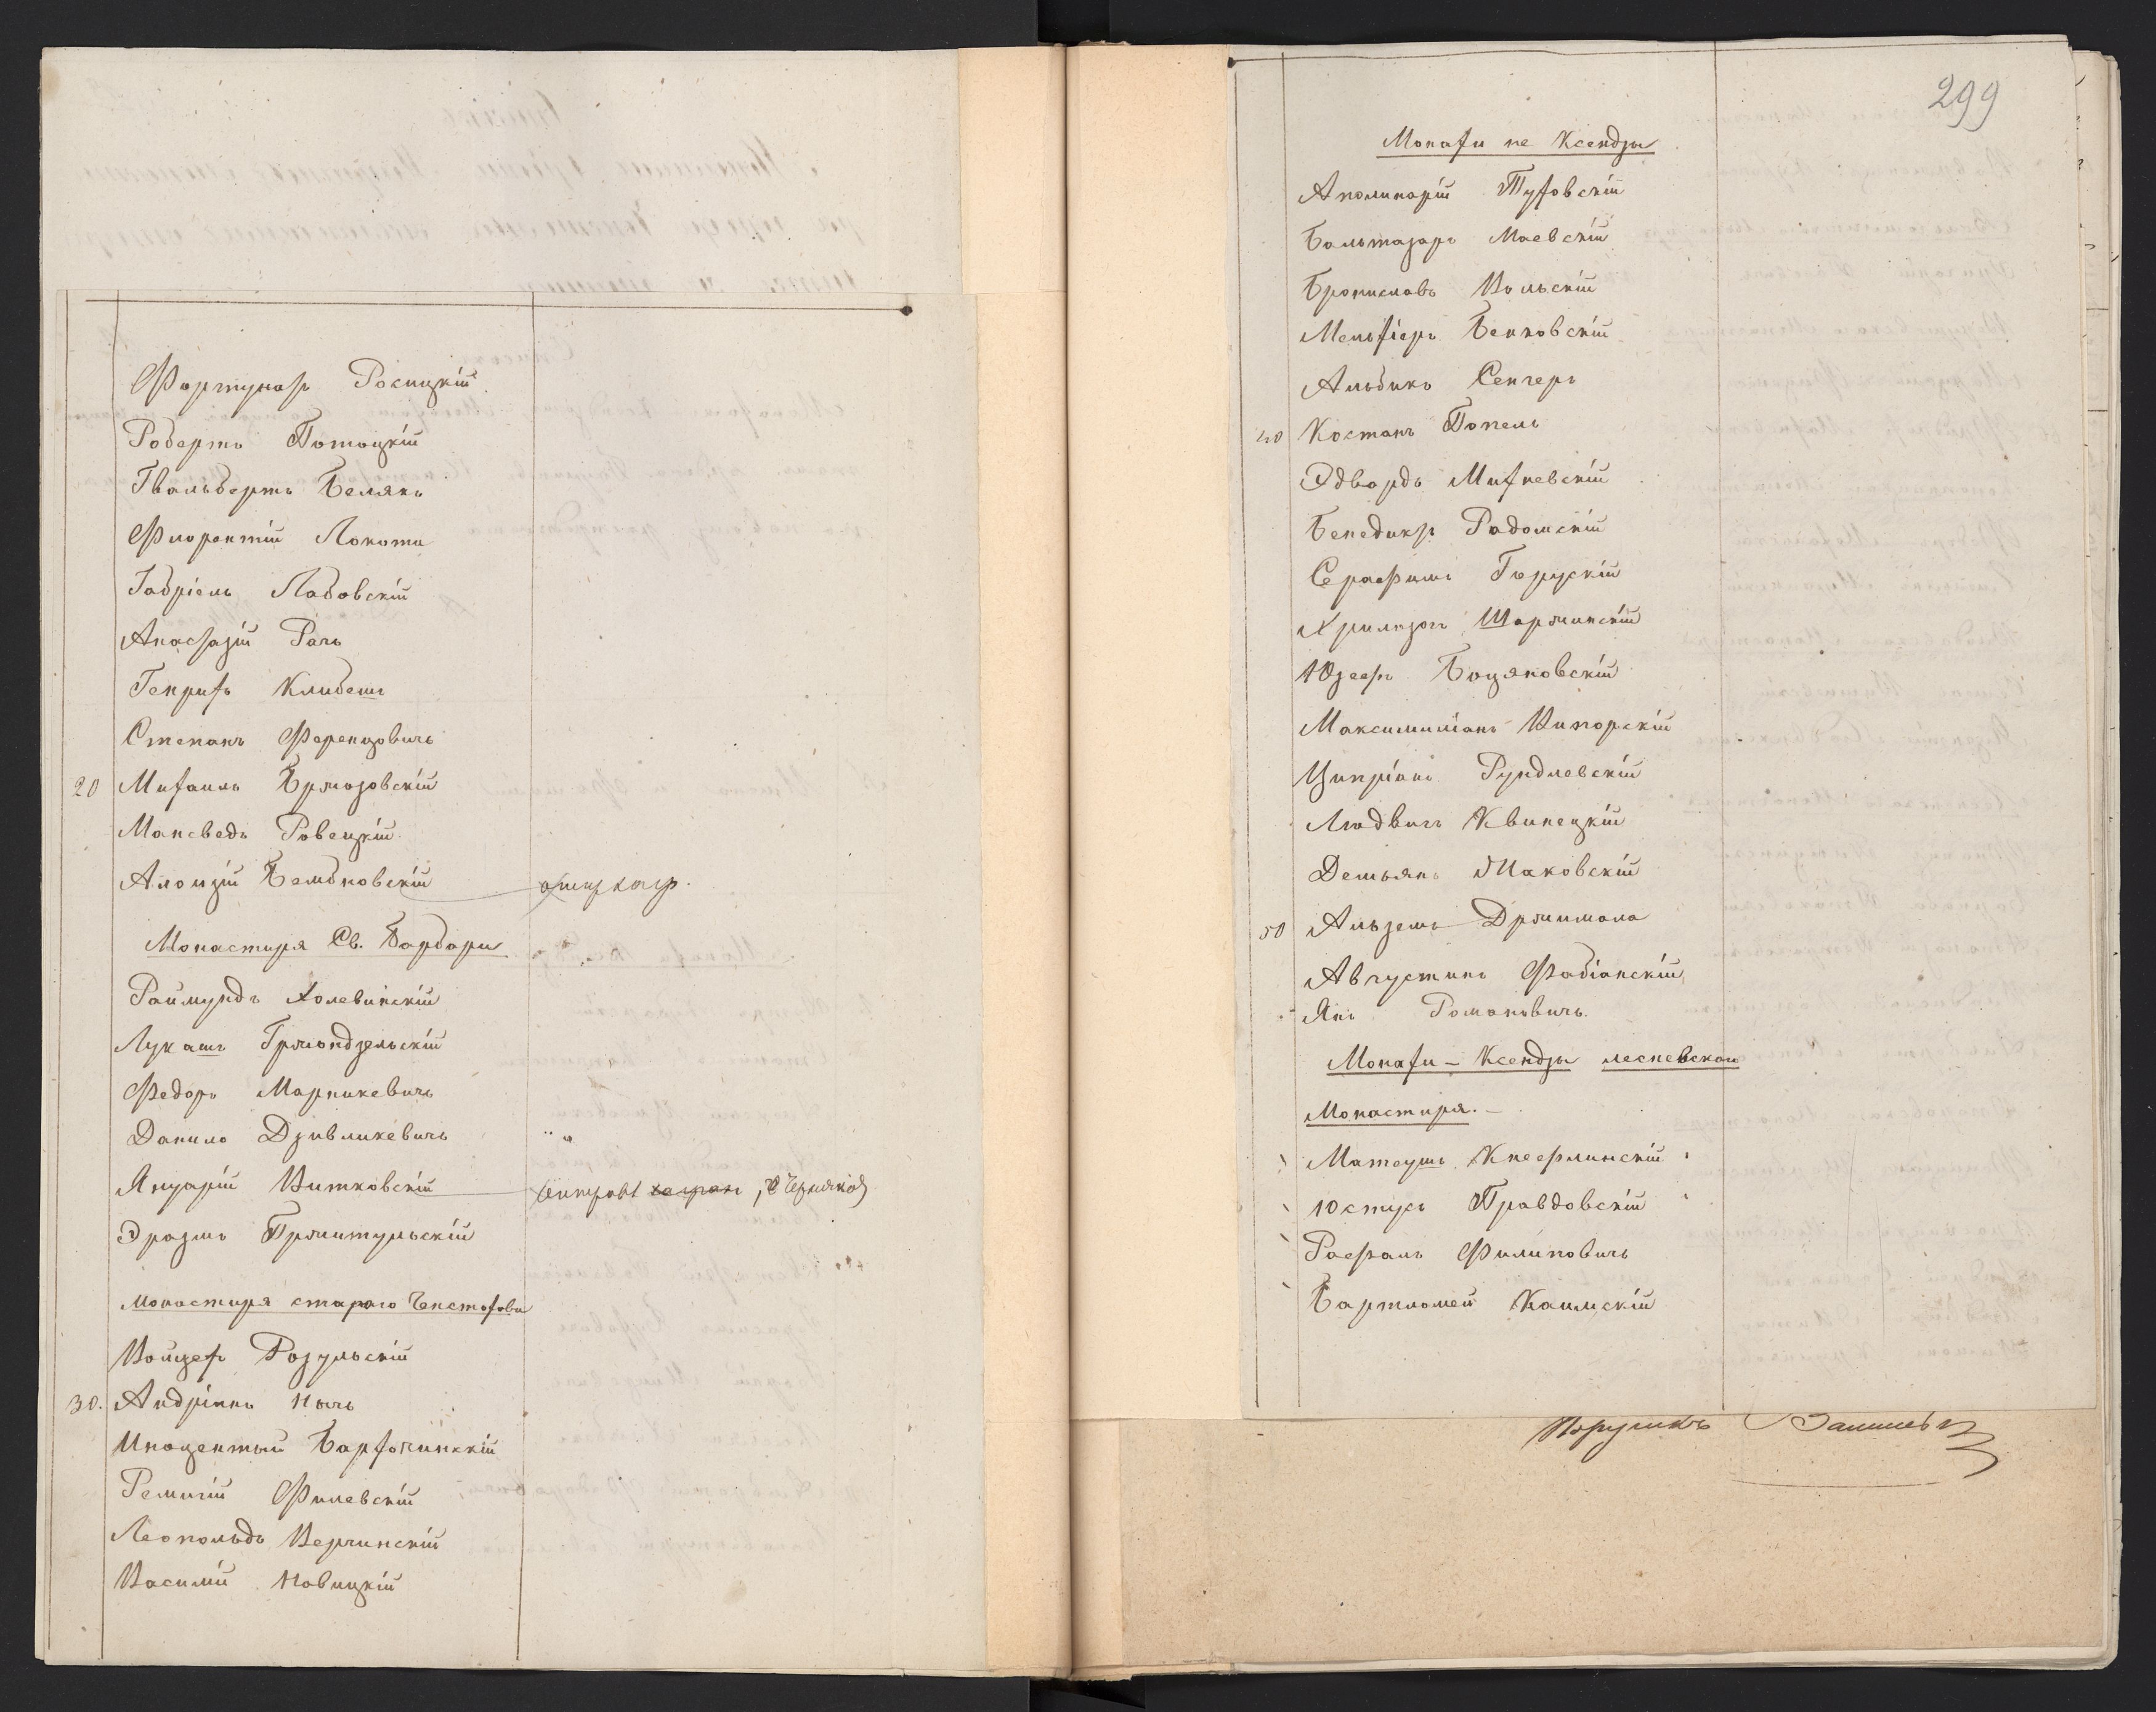 Фортунатъ Росицкій
Робертъ Потоцкій
Гвальбертъ Белякъ
Флорентій Локоти
Габріель Лабовскій
Анастазій Рачъ
Генрихъ Клибешъ
Степанъ Ференцовичъ
20 Михаилъ Бржозовскій
Мансведъ Ровецкій
Алоизій Бембновскій
Монастиря Св. Барбари
Раймундъ Холевинскій
Лукашъ Гржондзельскій
Федоръ Марникевичъ
Данило Дзивликевичъ
Януарій Витковскій
Эразмъ Пржитульскій
Монастиря стараго Ченстохова
Войцехъ Розульскій
30. Андріянъ Ничъ
Иноцентый Бархочинскій
Ремигій Филевскій
Леопольдъ Верчинскій
Василій Новицкій
299
Монахи не Ксендзы
Аполинарій Туховскій
Бальтазаръ Маевскій
Брониславъ Вольскій
Мельхіеръ Бенковскій
Альбинъ Сенгеръ
40 Костанъ Попель
Эдвардъ Михневскій
Бенедиктъ Радомскій
Серафимъ Герускій
Хризгзогъ Шаржинскій
Юзефъ Боцяновскій
Максимиліанъ Випорскій
Ципріанъ Рундлевскій
Людвигъ Квинецкій
Демьянъ Маковскій
50 Альземъ Држимала
Августинъ Фабіанскій
Янъ Романовичъ
Монахи - Ксендзы лесневскаго
Монастиря. -
Матеушъ Кнефлинскій
Юстусъ Правдовскій
Рафалъ Филиповичъ
Бартломей Каимскій
Поручикъ